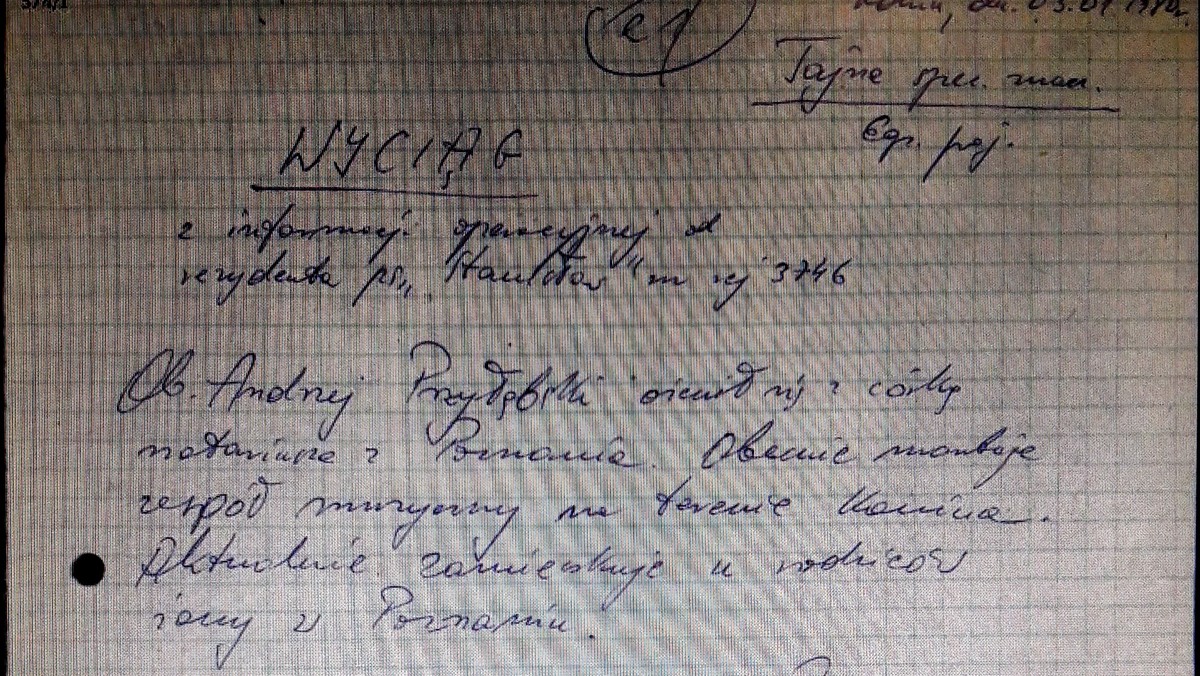 Konin, dn. 03.01.1980r.
Tajne spec. znacz.
Egz. poj.
WYCIĄG
z informacji operacyjnej od
rezydenta ps. „ " nr rej 3746
Ob. Andrzej Przyłębski ożenił się z córką
notariusza z Poznania. Obecnie montuje
zespół muzyczny na terenie Konina.
Aktualnie zamieszkuje u rodziców
żony w Poznaniu.